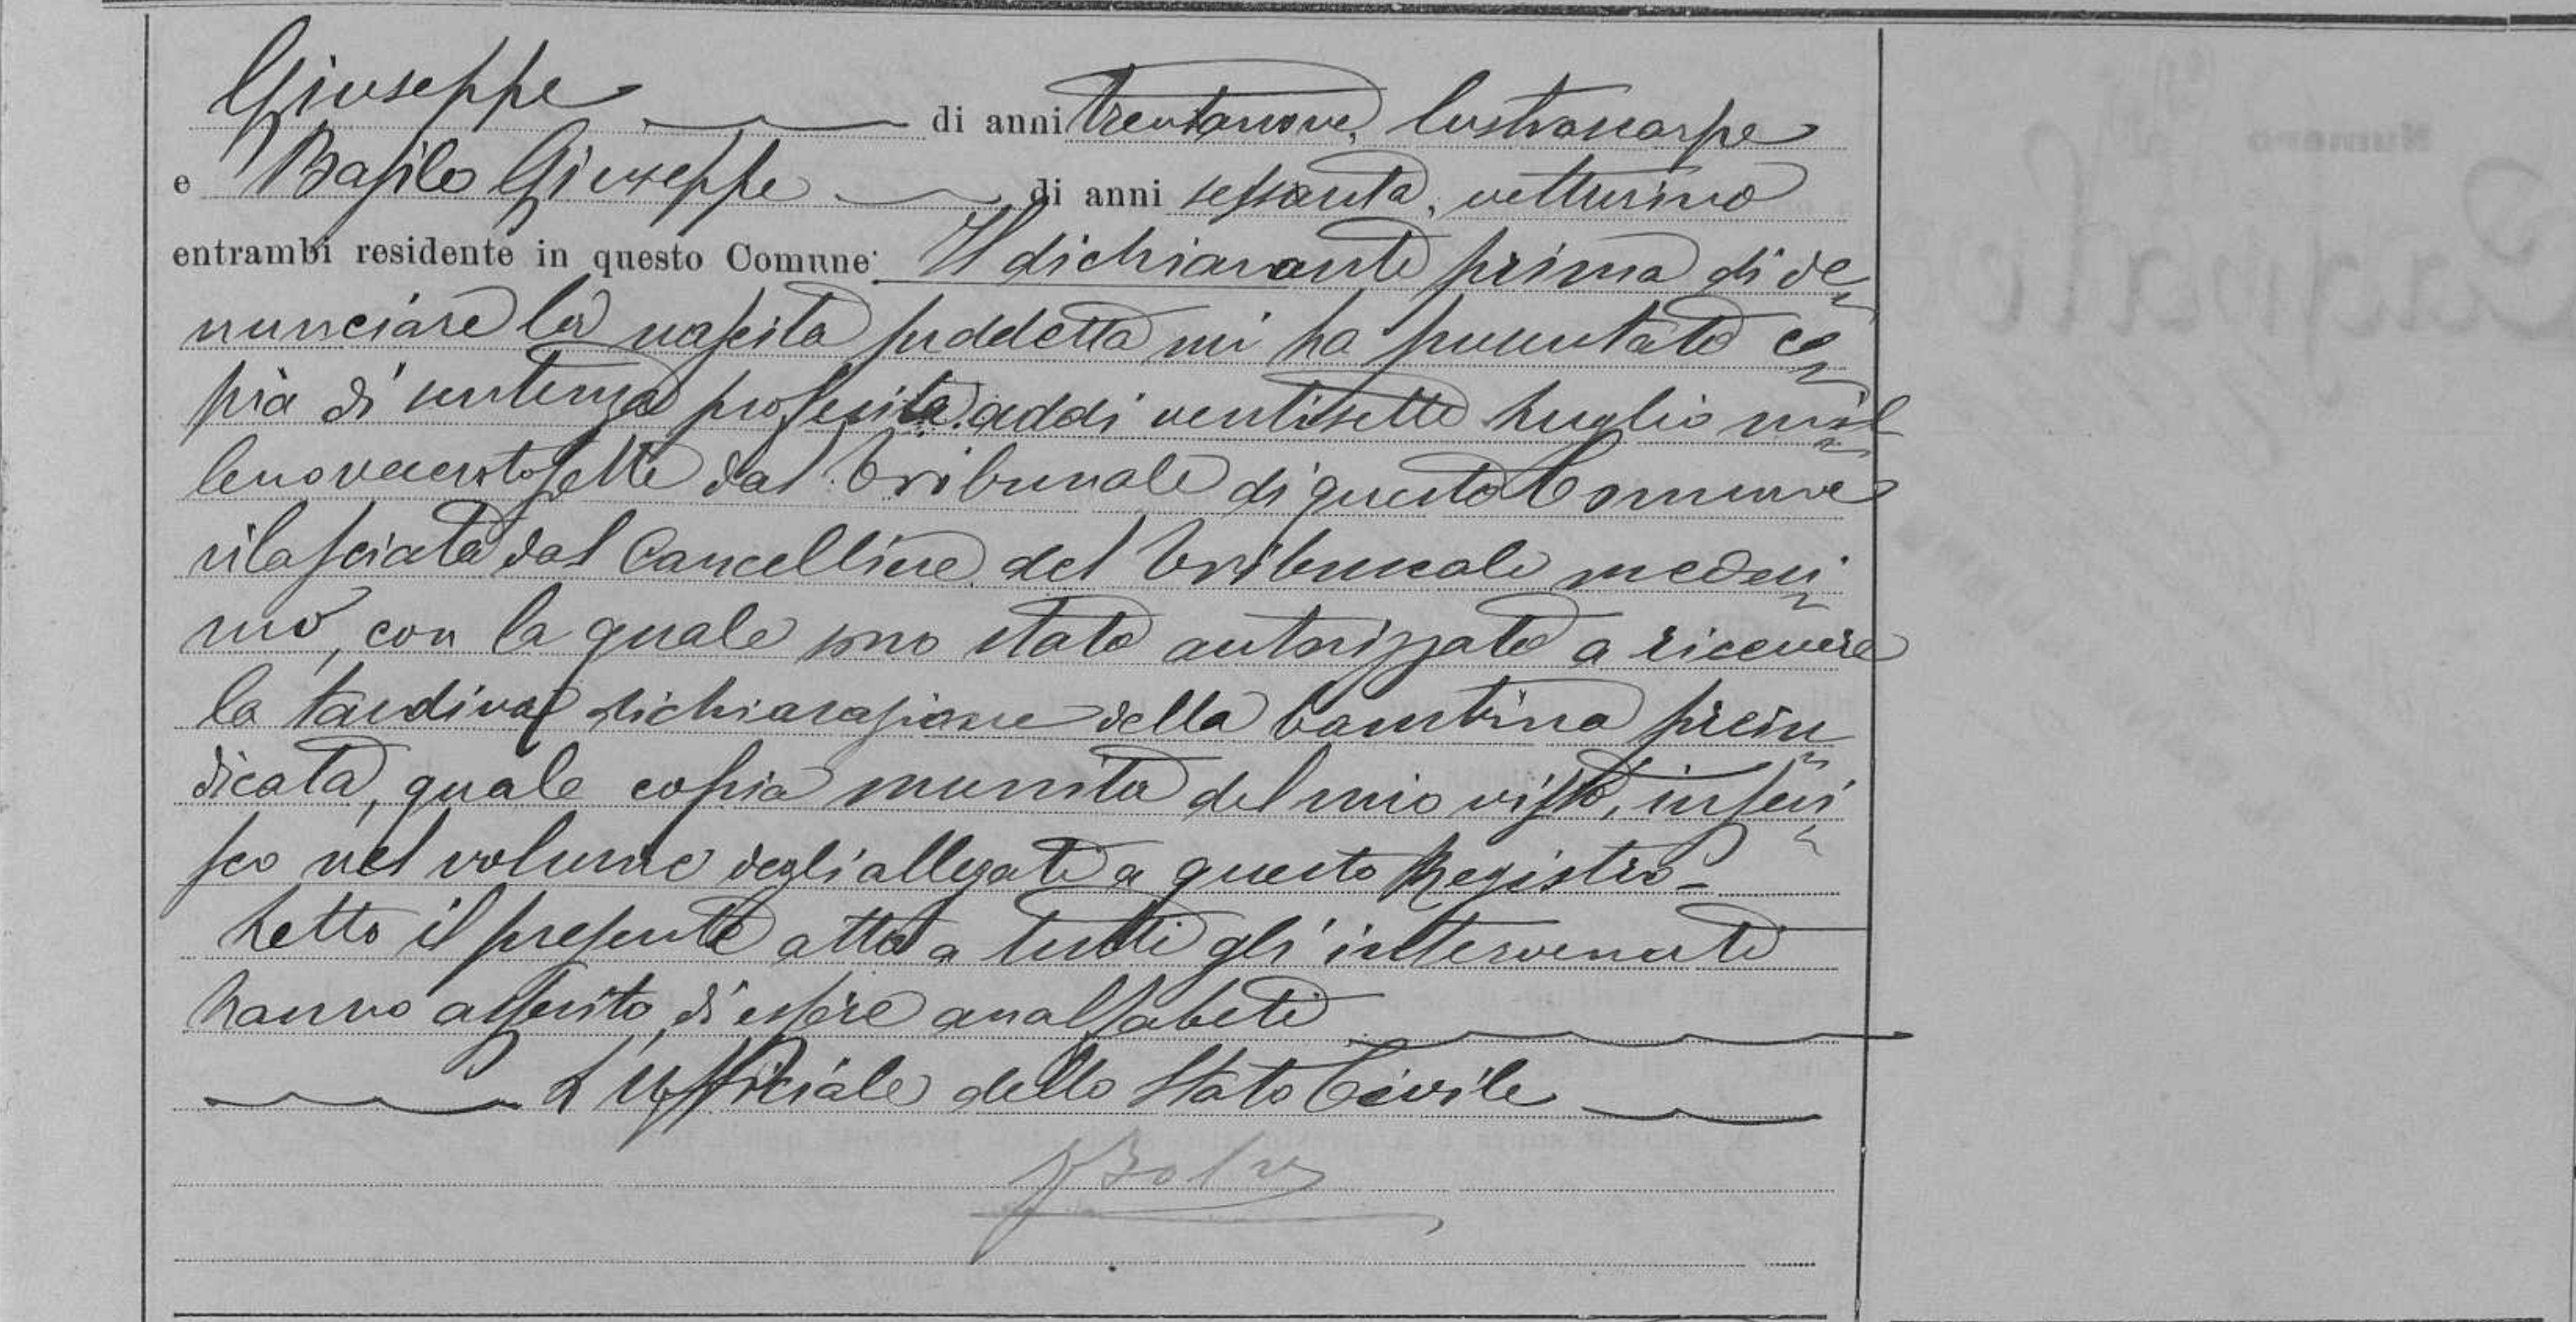 Giuseppe di anni trentanove, lustrascarpe
e Basile Giuseppe di anni sessanta, vetturino
entrambi residente in questo Comune. Il dichiarante prima di de
nunciare la nascita suddetta mi ha presentato co
pia di sentenza proferita addi ventisette Luglio mil
lenovecentosette dal Tribunale di questo Comune
rilasciata dal Cancelliere del Tribunale medesi
mo, con la quale sono stato autorizzato a ricevere
la tardiva dichiarazione della bambina prein
dicata, quale copia munita del mio visto, inseri
sco nel volume degli allegati a questo Registro-
Letto il presente atto a tutti gli intervenuti
hanno asserito di essere analfabeti
L'Ufficiale dello Stato Civile